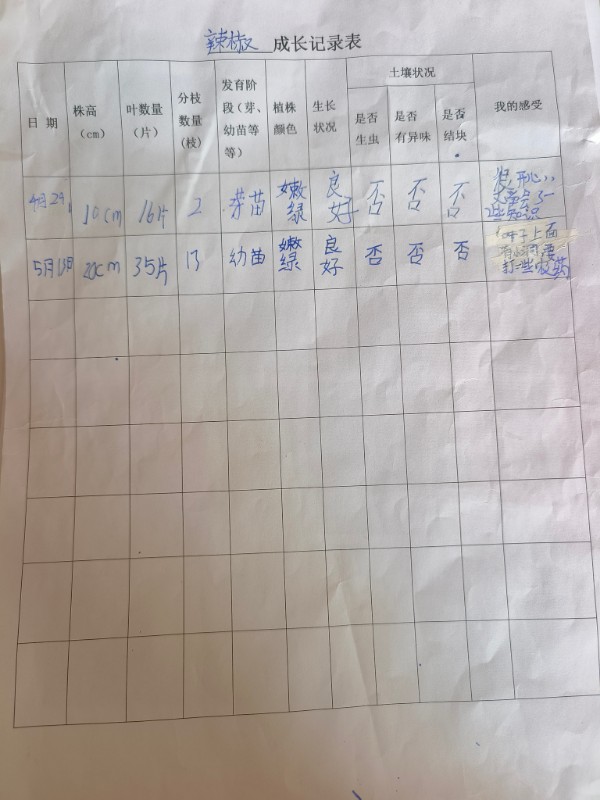 辣椒 成长记录表
日 期 株高(cm) 叶数量(片) 分枝数量(枝) 发育阶段(芽、幼苗等等) 植株颜色 生长状况 土壤状况 是否生虫 是否有异味 是否结块 我的感受
4月29 10cm 16片 2 芽苗 嫩绿 良好 否 否 否 很开心,又学会了一些知识
5月13日 20cm 35片 13 幼苗 嫩绿 良好 否 否 否 叶子上面有 要打一些农药